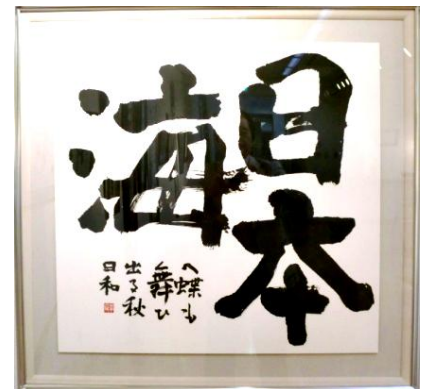 日本
海
へ蝶も
舞ひ
出る秋
日和